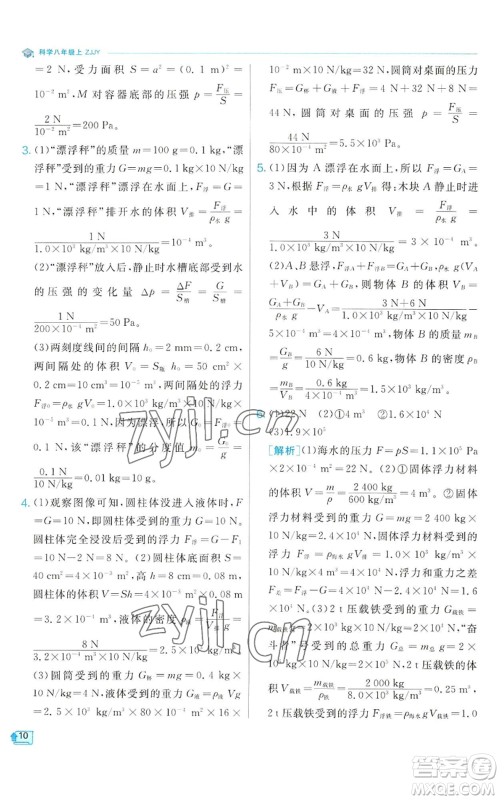 科学八年级上 ZJJY
＝2 N，受力面积 S＝a²＝(10⁻¹ m)²＝
10⁻² m²，M 对容器底部的压强 p＝F压/S＝
2 N/10⁻² m²＝200 Pa。
3. (1)“漂浮秤”的质量 m＝100 g＝0.1 kg，“漂
浮秤”受到的重力 G＝mg＝0.1 kg×10 N/kg
＝1 N，因“漂浮秤”漂浮在水面上，F浮＝G＝
1 N，“漂浮秤”排开水的体积 V排＝F浮/ρ水 g＝
1 N/1.0×10³ kg/m³×10 N/kg＝10⁻⁴ m³。
(2)“漂浮秤”放入后，静止时水槽底部受到水
的压强的变化量 Δp＝ΔF/S槽＝G/S槽＝
1 N/200×10⁻⁴ m²＝50 Pa。
(3)两刻度线间的间隔 h₀＝2 mm＝0.2 cm，
两刻度线间的体积 V₀＝S瓶 h₀＝50 cm²×
0.2 cm＝10 cm³＝10⁻⁵ m³，两间隔间的浮力
F₀＝ρ水 gV₀＝1.0×10³ kg/m³×10 N/kg×
10⁻⁵ m³＝0.1 N，因为漂浮，所以 G₀＝F₀＝
0.1 N，该“漂浮秤”的分度值 m₀＝G₀/g＝
0.1 N/10 N/kg＝0.01 kg＝10 g。
4. (1)观察图像可知，圆柱体没进入液体时，F＝
G＝10 N，即圆柱体受到的重力 G＝10 N，圆
柱体完全浸没后受到的浮力 F浮＝G－F₁＝
10 N－2 N＝8 N。(2)圆柱体底面积 S＝
40 cm²＝4×10⁻³ m²，高 h＝8 cm＝0.08 m，
圆柱体的体积 V＝Sh＝4×10⁻³ m²×0.08 m
＝3.2×10⁻⁴ m³，液体的密度 ρ＝F浮/V排 g＝
8 N/3.2×10⁻⁴ m³×10 N/kg＝2.5×10³ kg/m³。
(3)圆筒受到的重力 G桶＝m桶 g＝0.4 kg×
10 N/kg＝4 N，液体受到的重力 G液＝ρVg
＝2.5×10³ kg/m³×(1 600－320)×10⁻⁶ m³
×10 N/kg＝32 N，圆筒对桌面的压力
F压＝G桶＋G液＋F浮＝4 N＋32 N＋8 N＝
44 N，圆筒对桌面的压强 p＝F压/S＝
44 N/80×10⁻⁴ m²＝5.5×10³ Pa。
5. (1)因为 A 漂浮在水面上，所以 F浮＝GA＝
3 N，根据 F浮＝ρ水 gV排得：木块 A 静止时进
入水中的体积 V排＝F浮/ρ水 g＝
3 N/1.0×10³ kg/m³×10 N/kg＝3×10⁻⁴ m³。
(2)A、B 悬浮，F浮A＋F浮B＝GA＋GB，ρ水 g(VA
＋VB)＝GA＋GB，则物体 B 的体积 VB＝
GA＋GB/ρ水 g－VA＝3 N＋6 N/1.0×10³ kg/m³×10 N/kg－5
×10⁻⁴ m³＝4×10⁻⁴ m³。物体 B 的质量
mB＝GB/g＝6 N/10 N/kg＝0.6 kg，物体 B 的密度 ρB
＝mB/VB＝0.6 kg/4×10⁻⁴ m³＝1.5×10³ kg/m³。
6. (1)22 N (2)①4 m³ ②1.6×10⁴
(3)1.9×10⁵
[解析] (1)海水的压力 F＝pS＝1.1×10⁵ Pa
×2×10⁻⁴ m²＝22 N。(2)①固体浮力材料
的体积 V＝m/ρ＝2 400 kg/600 kg/m³＝4 m³。②固体
浮力材料受到的重力 G＝mg＝2 400 kg×
10 N/kg＝2.4×10⁴ N，浸没在海水中固体
浮力材料受到的浮力 F浮＝ρ海水 gV排＝1.0
×10³ kg/m³×10 N/kg×4 m³＝4×10⁴ N，
固体浮力材料在海水中能提供的
F＝F浮－G＝4×10⁴ N－2.4×10⁴ N＝1.6
×10⁴ N。(3)2 t 压载铁受到的重力 G载铁＝
m载铁 g＝2 000 kg×10 N/kg＝2×10⁴ N，“奋
斗者”号受到的总重力 G总＝m总 g＝
2×10⁴ kg×10 N/kg＝2×10⁵ N，2 t 压载铁
的体积 V载铁＝m载铁/ρ载铁＝2 000 kg/8.0×10³ kg/m³＝0.25 m³，
2 t 压载铁所受的浮力 F浮铁＝ρ海水 gV载铁＝1.0
10
zyjl.cn
zyjl.cn